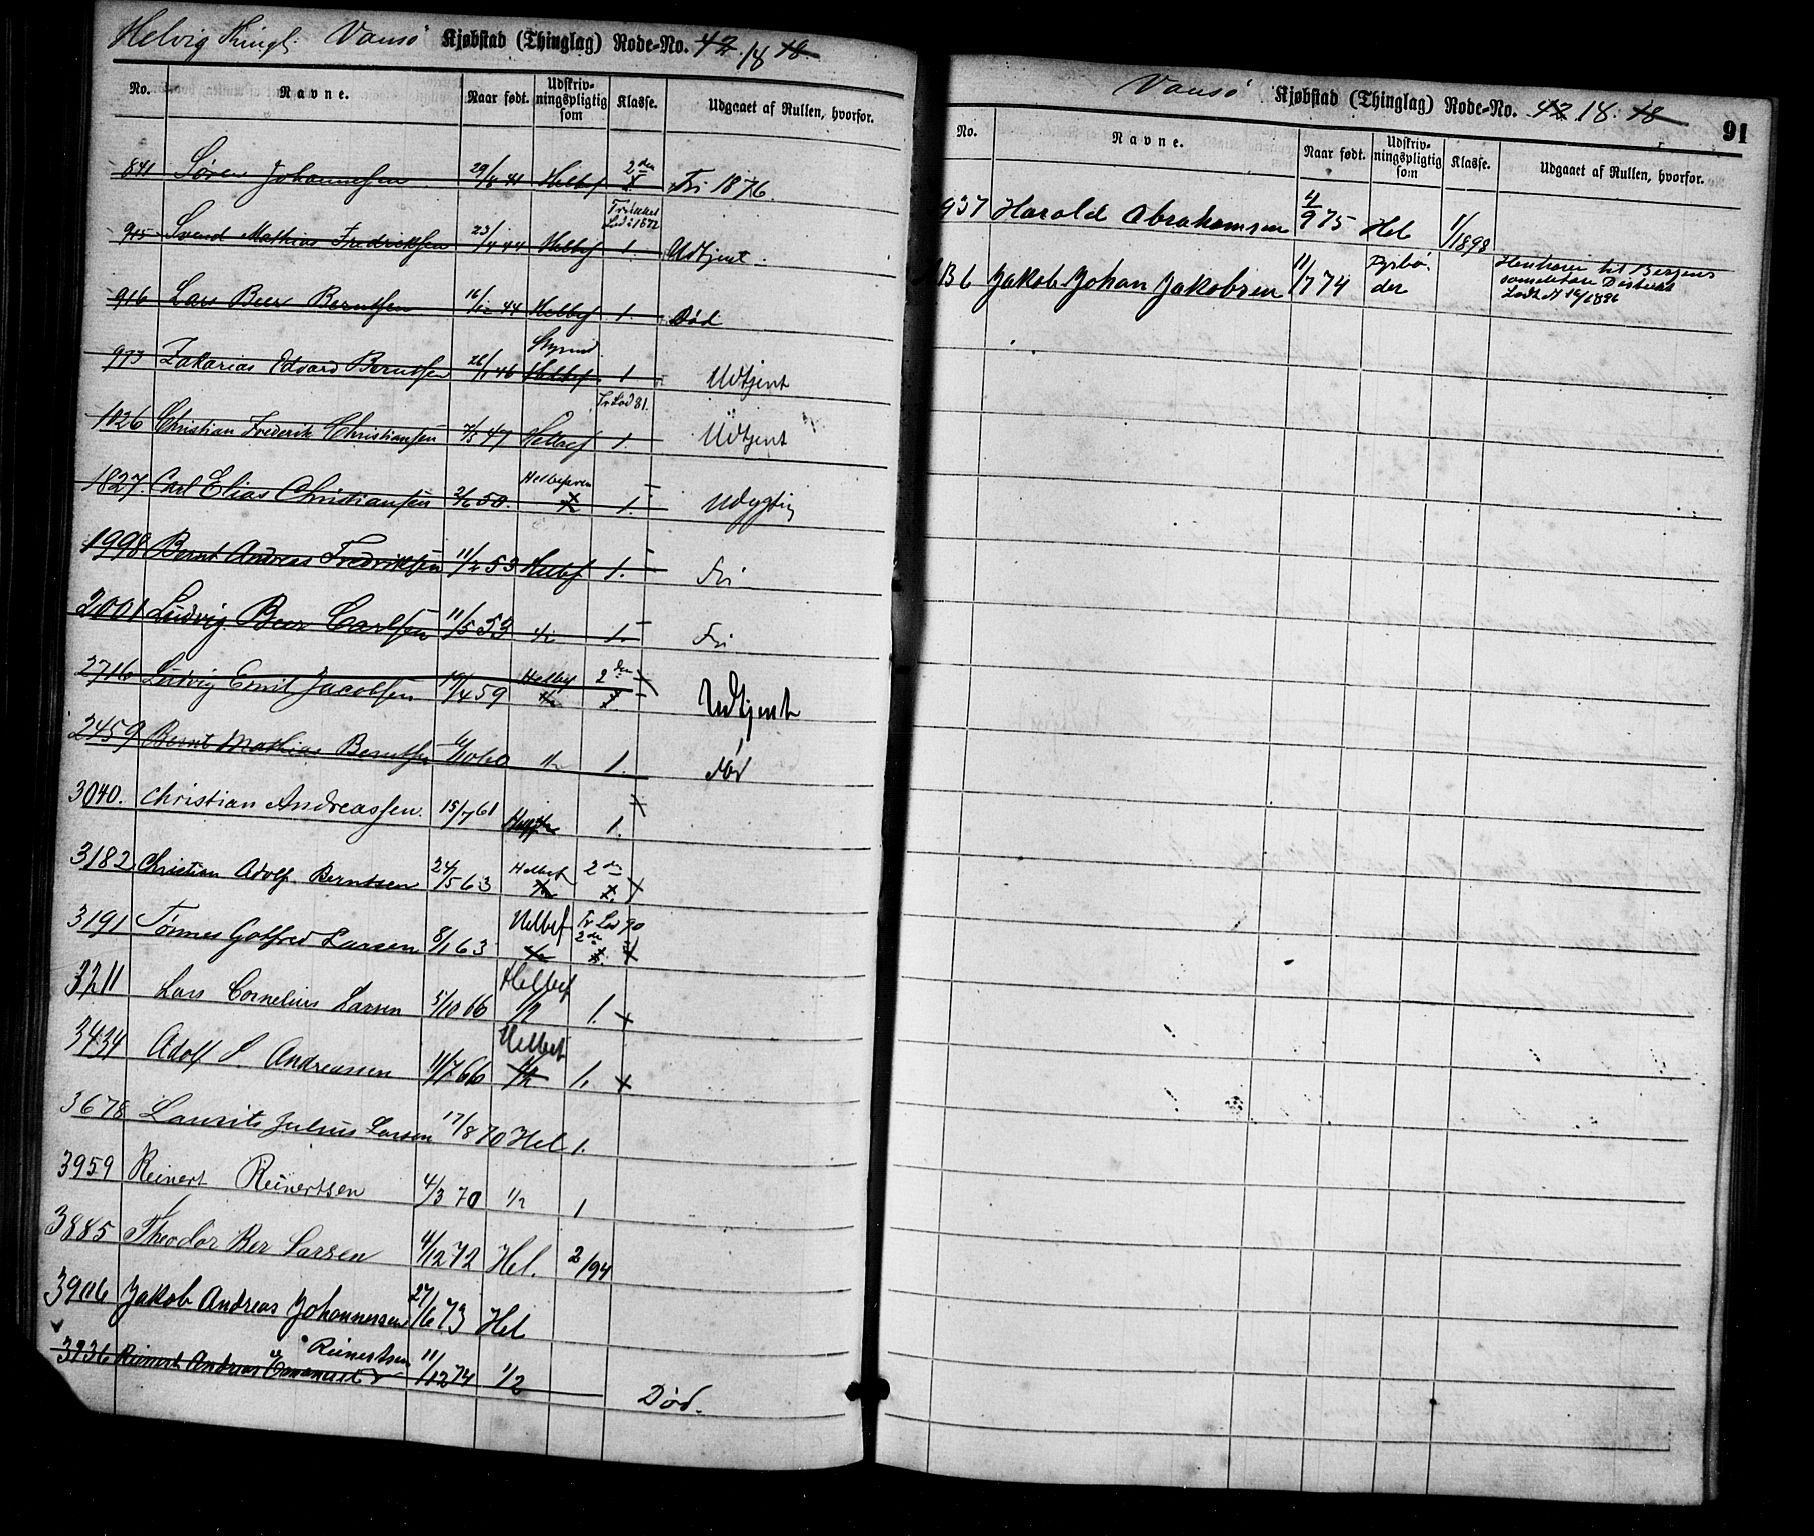 Helvig Thingl. Vansø Kjøbstad (Thinglag) Rode-No. 42. 18 18.
No. Navne. Naar født. Udskriv-ningspligtig som Klasse. Udgaaet af Rullen, hvorfor.
841 Søren Johannesen 29/8 41 Helbef 2den Fri 1876.
915 Svend Mathias Fredriksen 23/4 44 Helbef 1. Udtjent.
916 Lars Beer Berntsen 16/12 44 Helbef 1. Død
973 Zakarias Edvard Berntsen 26/1 46 Styrmd. Helbef 1 Udtjent
1026 Christian Frederik Christiansen 7/5 47 Helbef 1. Fr Lod 81. Udtjent
1827. Carl Elias Christiansen 2/6 50. 1. Udygtig
1998 Bernt Andreas Fredriksen 11/2 53 Helbef 1. Fri
2001 Ludvig Beer Carlsen 11/5 53 1/2 1. Fri
2716 Ludvig Emil Jacobsen 19/4 59 Helbef 2den Udtjent
2459 Bernt Mathias Berntsen 6/10 60 1/2 1.
3040. Christian Andreassen. 15/7 61 1.
3182 Christian Adolf Berntsen 24/5 63 Helbef 2den
3191 Tønnes Gotfred Larsen 8/1 63 Helbef Fr Lod 90 2den
3211 Lars Cornelius Larsen 5/10 66 Helbef 1/2 1.
3434 Adolf L. Andreassen 11/7 66 Helbef 1/2 1.
3678 Laurits Julius Larsen 17/8 70 Hel 1.
3959 Reinert Reinertsen 4/3 70 1/2 1
3885 Theodor Ber Larsen 4/12 72 Hel. 2/94
3906 Jakob Andreas Johannessen 27/6 73 Hel
3936 Reinert Andreas Emanuel Reinertsen 11/12 74 1/2 Død.
Vansø Kjøbstad (Thinglag) Rode-No. 42 18. 18
91
No. Navne. Naar født. Udskriv-ningspligtig som Klasse. Udgaaet af Rullen, hvorfor.
937 Harald Abrahamsen 4/9 75 Hel 1/1898
Jakob Johan Jakobsen 11/7 74 Fyrbø-der Henhører til Bergens